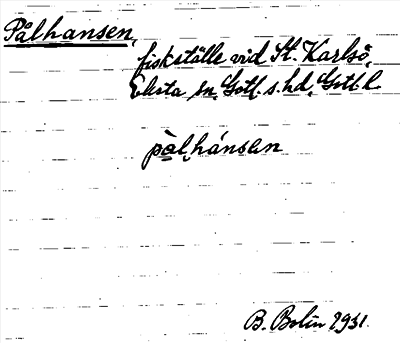 Pålhansen,
fiskställe vid St. Karlsö,
Eksta sn, Gotl. s. hd, Gotl. l.
pàl,hánsen
B. Bolin 1931.